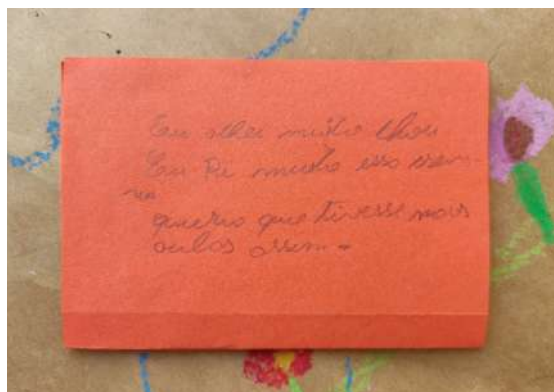 Eu achei muito
Eu Ri muito isso
queria que tivesse mais
aulas assim